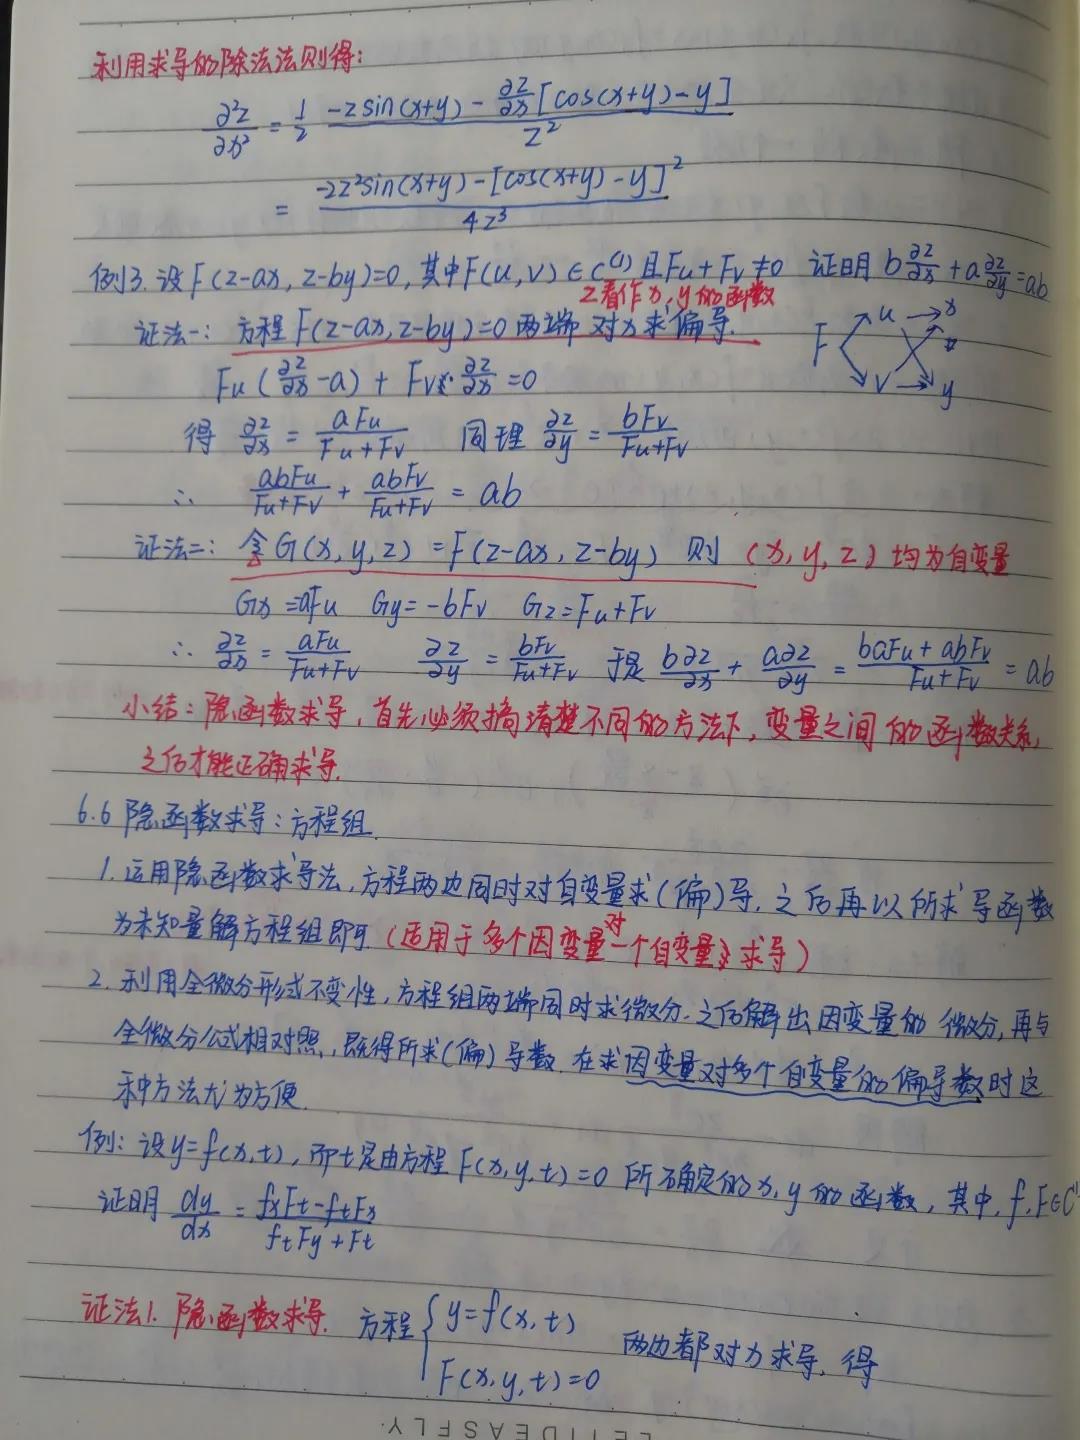 利用求导的除法法则得:
∂²z/∂x² = 1/2 · (-zsin(x+y) - ∂z/∂x[cos(x+y)-y])/z²
= (-2z²sin(x+y)-[cos(x+y)-y]²)/4z³
例3. 设F(z-ax, z-by)=0, 其中F(u,v)∈C⁽¹⁾且Fu+Fv≠0 证明 b∂z/∂x+a∂z/∂y=ab
z看作x,y的函数
证法一: 方程F(z-ax,z-by)=0两端 对x求偏导.
F u x v y
Fu(∂z/∂x-a)+Fv·∂z/∂x=0
得 ∂z/∂x = aFu/(Fu+Fv) 同理 ∂z/∂y = bFv/(Fu+Fv)
∴ abFu/(Fu+Fv) + abFv/(Fu+Fv) = ab
证法二: 令G(x,y,z)=F(z-ax,z-by) 则 (x,y,z)均为自变量
Gx=aFu Gy=-bFv Gz=Fu+Fv
∴ ∂z/∂x = aFu/(Fu+Fv) ∂z/∂y = bFv/(Fu+Fv) 于是 b∂z/∂x + a∂z/∂y = (baFu+abFv)/(Fu+Fv) = ab
小结: 隐函数求导, 首先必须搞清楚不同的方法下, 变量之间的函数关系,
之后才能正确求导.
6.6 隐函数求导: 方程组.
1. 运用隐函数求导法, 方程两边同时对自变量求(偏)导, 之后再以所求导函数
为未知量解方程组即可 (适用于多个因变量对一个自变量求导)
2. 利用全微分形式不变性, 方程组两端同时求微分. 之后解出因变量的微分, 再与
全微分公式相对照, 既得所求(偏)导数. 在求因变量对多个自变量的偏导数时这
种方法尤为方便.
例: 设y=f(x,t), 而t是由方程F(x,y,t)=0 所确定的x,y的函数, 其中, f,F∈C⁽¹⁾
证明 dy/dx = (fxFt-ftFx)/(ftFy+Ft)
证法1. 隐函数求导. 方程{y=f(x,t) 两边都对x求导, 得
F(x,y,t)=0
LETIDEASFLY